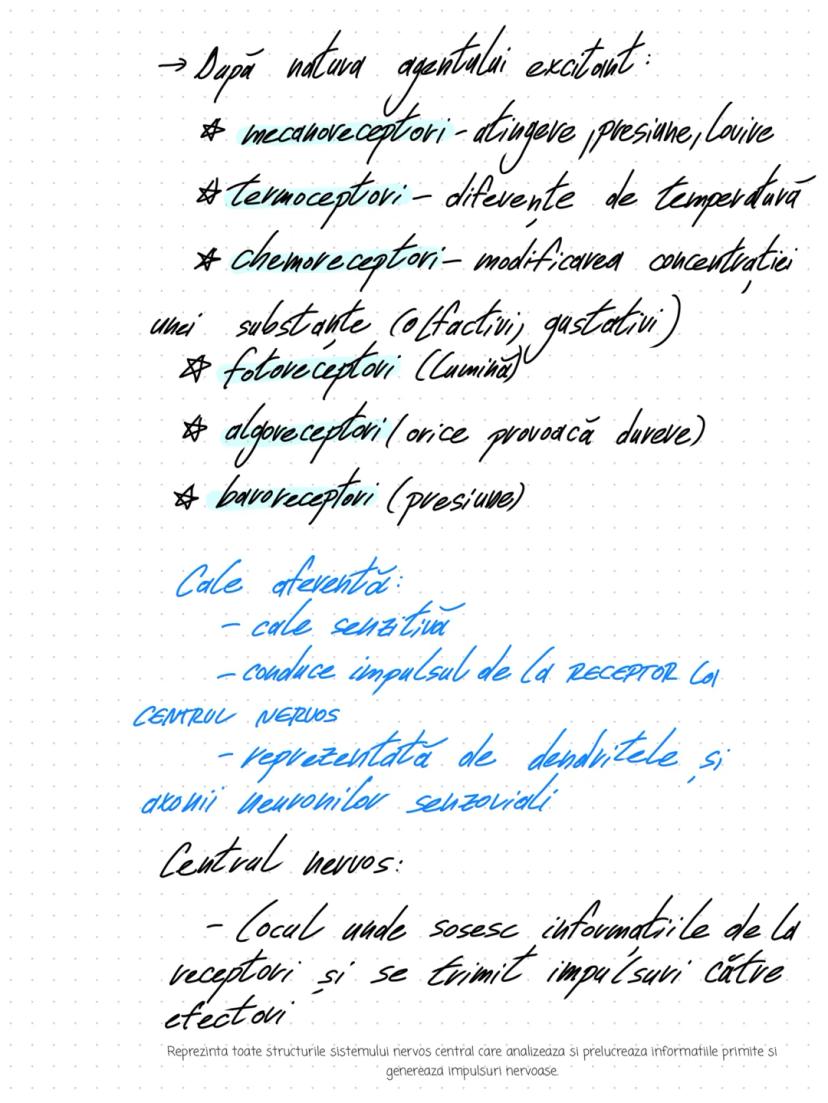 → După natura agentului excitant:
☆ mecanoreceptori - atingere, presiune, lovire
☆ termoceptori - diferențe de temperatură
☆ chemoreceptori - modificarea concentrației
unei substanțe (olfactivi, gustativi)
☆ fotoreceptori (lumină)
☆ algoreceptori (orice provoacă durere)
☆ baroreceptori (presiune)
Cale aferentă:
- cale senzitivă
- conduce impulsul de la RECEPTOR la
CENTRUL NERVOS
- reprezentată de dendritele și
axonii neuronilor senzoriali
Centrul nervos:
- locul unde sosesc informațiile de la
receptori și se trimit impulsuri către
efectori
Reprezinta toate structurile sistemului nervos central care analizeaza si prelucreaza informatiile primite si
genereaza impulsuri nervoase.